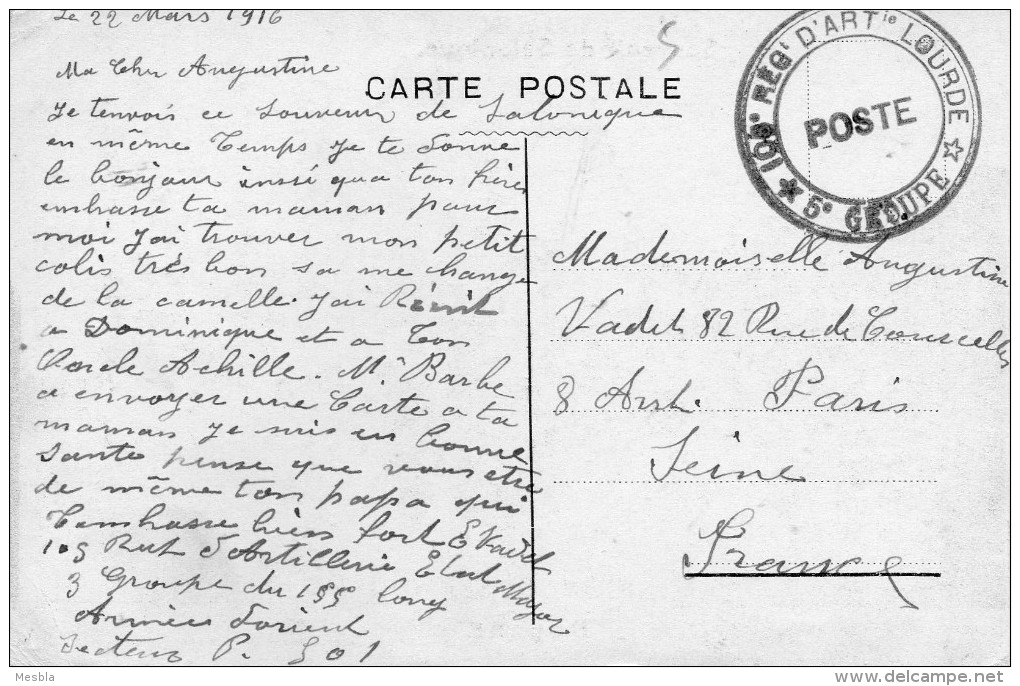 Le 22 Mars 1916
Ma Cher Augustine
CARTE POSTALE
Je tenvois ce Souvenir de Salonique
en même Temps je te donne
le bonjour inssi qua ton frère
embrasse ta maman pour
moi j'ai trouver mon petit
colis très bon sa me change
de la camelle. j'ai
a Dominique et a Ton
Oncle Achille. Mr Barbe
a envoyer une Carte a ta
maman je suis en bonne
Sante pense que vous etre
de même ton papa qui
t'embrasse bien fort E Vadel
105 d'Artillerie Etat Mayor
3 Groupe du 155 long
Armée d'orient
Secteur P. 501
Mademoiselle Augustine
Vadel 82 Rue de Courcelles
8 Paris
Seine
France
REGt D'ARTie LOURDE
POSTE
5e GROUPE
5
Mesbla
delcampe.net